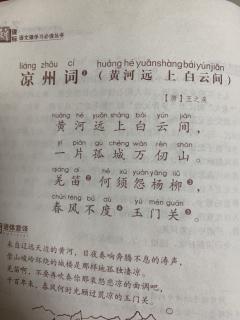 课标 语文课学习必读丛书
liáng zhōu cí huáng hé yuǎn shàng bái yún jiān
凉州词（黄河远上白云间）
［唐］王之涣
huáng hé yuǎn shàng bái yún jiān
黄河远上白云间，
yí piàn gū chéng wàn rèn shān
一片孤城万仞山。
qiāng dí hé xū yuàn yáng liǔ
羌笛何须怨杨柳，
chūn fēng bú dù yù mén guān
春风不度玉门关。
体意译
来自辽远天边的黄河，日夜奏响奔腾不息的涛声，
崇山峻岭环绕的城楼是那样地孤独凄凉。
羌笛啊，不要再吹奏你那哀怨悲凉的曲调吧，
千百年来，春风何时光顾过荒凉的玉门关。